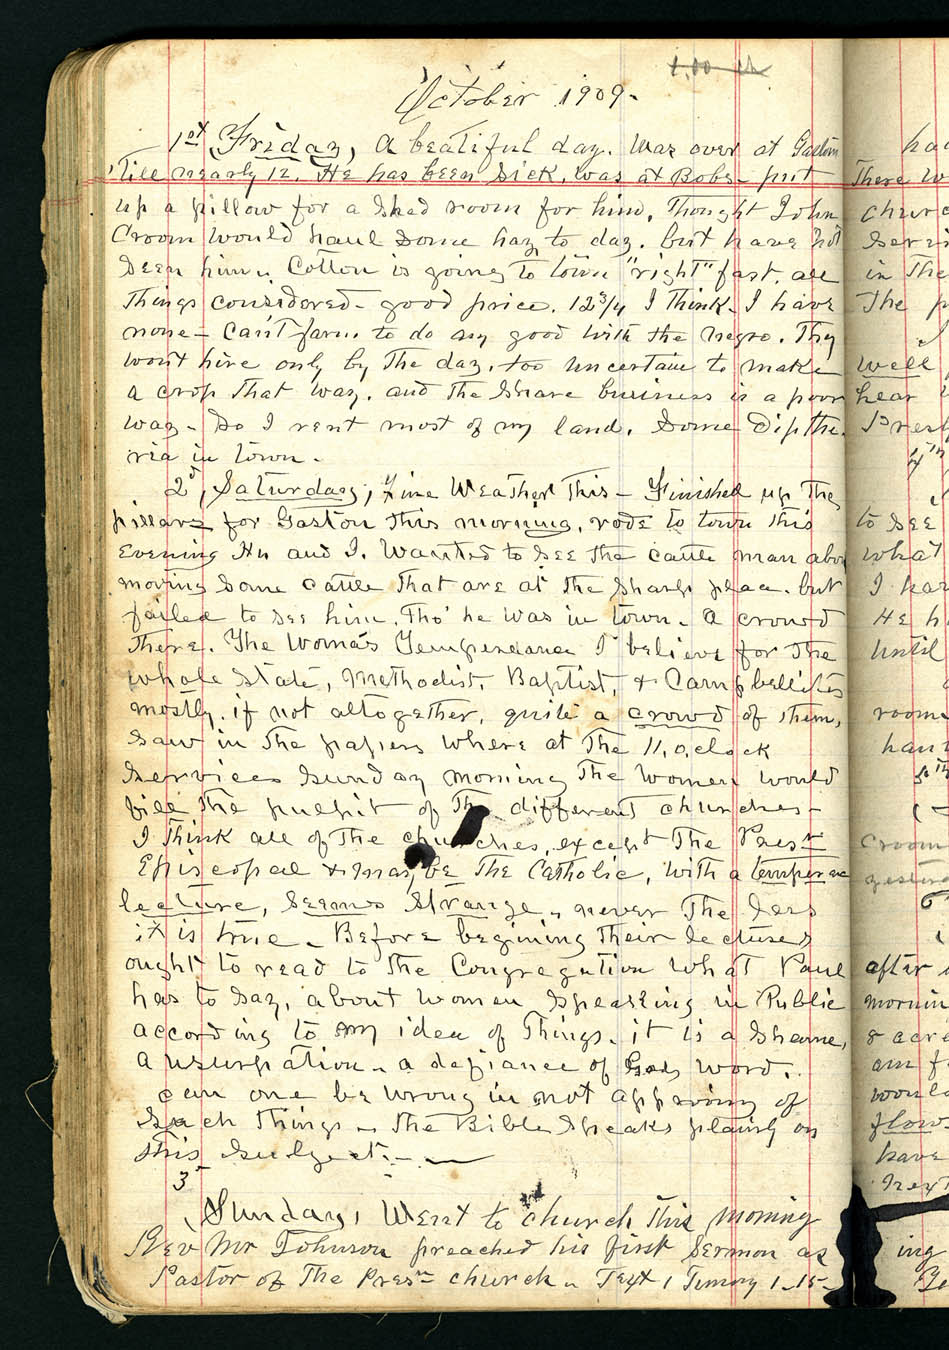 October 1909.
1st Friday, A beatiful day. Was over at Gaston
Till nearly 12. He has been sick, was at Bobs - put
up a pillow for a Shed room for him. Thought John
Croom would haul some hay to day. but have not
seen him. Cotton is going to town "right" fast. all
things considered - good price. 12 3/4 I think. I have
none - can't farm to do any good with the negro. They
won't hire only by the day. too uncertain to make
a crop that way. and the share business is a poor
way - So I rent most of my land. Some Dipthe-
ria in town.
2d, Saturday, Fine Weather this - Finished up the
pillars for Gaston this morning. rode to town this
Evening Hu and I. Wanted to see the cattle man about
moving some cattle that are at the Sharp place. but
failed to see him. Tho' he was in town. a crowd
there. The Woma's Temperance I believe for the
whole State, Methodist, Baptist, & Campbellites
mostly. if not altogether, quite a crowd of them,
saw in the papers where at the 11, o,clock
services Sunday morning the women would
fill the pulpit of The different churches -
I think all of the churches, except the Presn
Episcopal & may be the Catholic, with a temperance
lecture, seems strange - never the less
it is true - Before begining their lectures
ought to read to the Congregation what Paul
has to say, about women speaking in Public
according to my idea of things. it is a shame,
a usurpation - a defiance of Gods word.
can one be wrong in not approving of
such things - the Bible speaks plainly on
this subject. -
3
Sunday, Went to church this morning
Rev Mr Johnson preached his first Sermon as
Pastor of the Presn church - Text 1 Timory 1-15-
had
There w
church
in the
the p
well
hear
4th
to see
what
I ha
He h
until
room
5th
Croom
yester
6
after
mornin
8 acre
am f
would
flow
have
next
ing